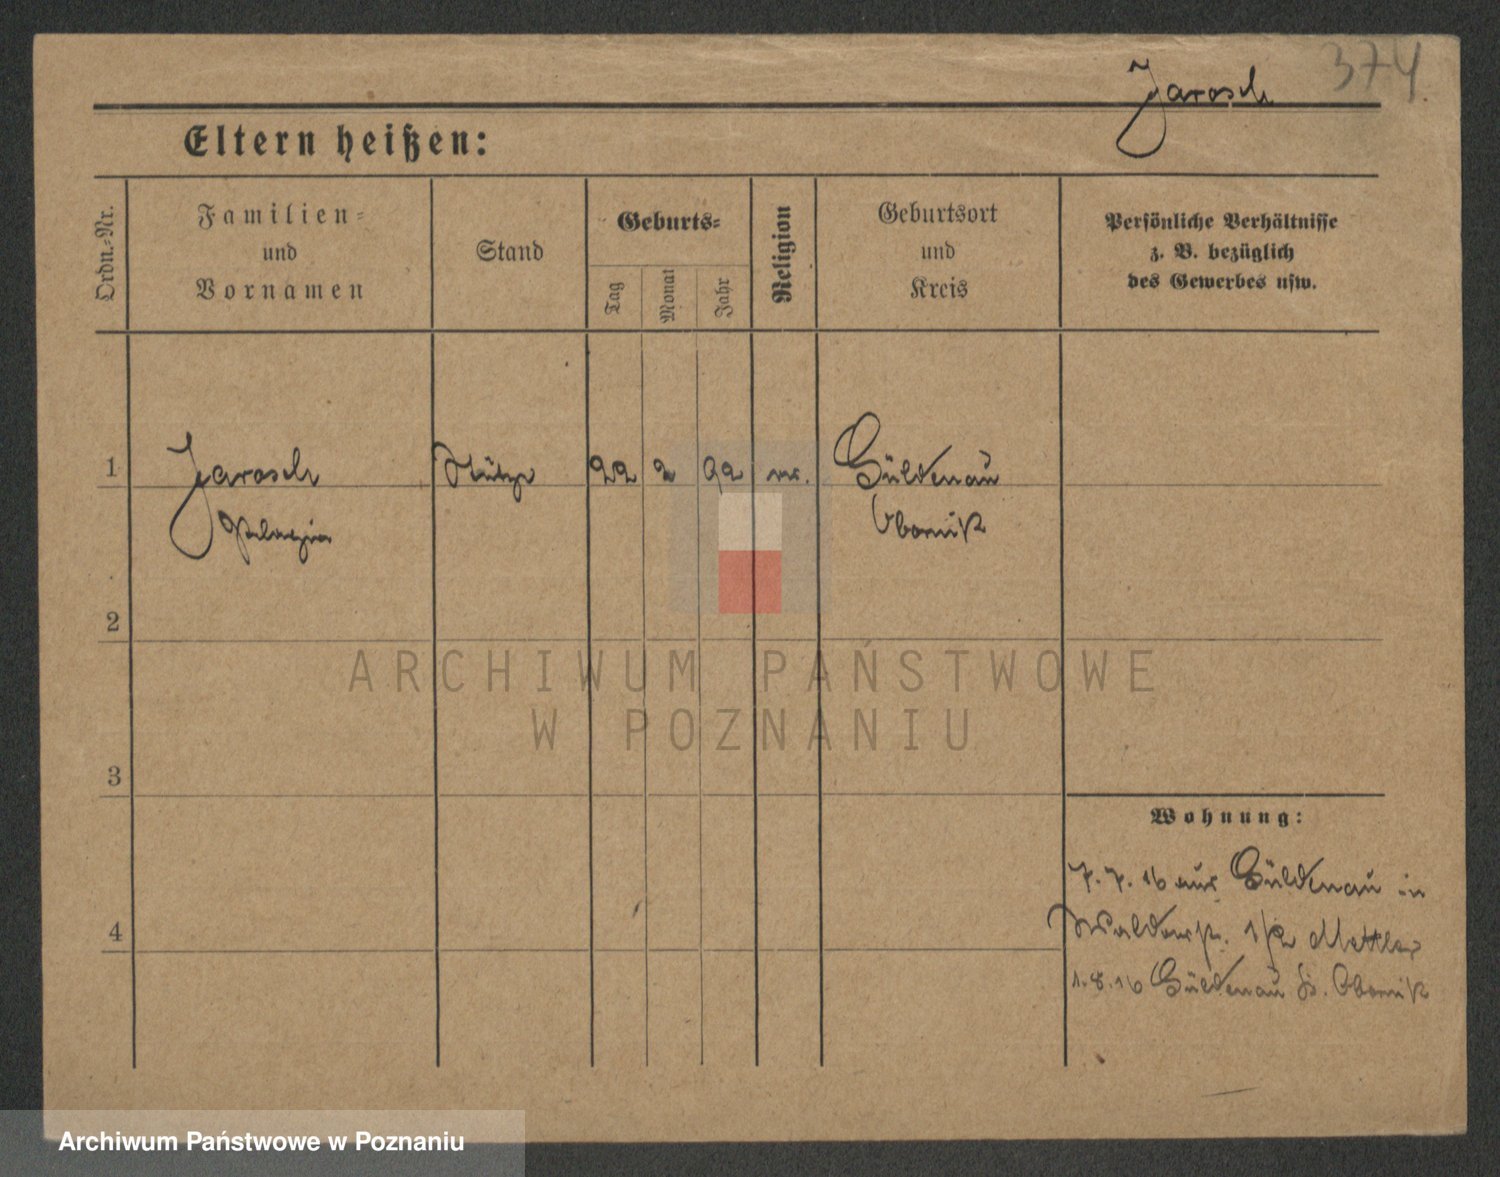 374
Jarosch
Eltern heißen:
Ordn.-Nr.
Familien-
und
Vornamen
Stand
Geburts-
Tag
Monat
Jahr
Religion
Geburtsort
und
Kreis
Persönliche Verhältnisse
z. B. bezüglich
des Gewerbes usw.
1
Jarosch
Pelagia
Stütze
22
2
92
Güldenau
Obornik
2
ARCHIWUM PAŃSTWOWE
W POZNANIU
3
Wohnung:
7.7.16 aus Güldenau in
4
1.8.16 Güldenau Kr. Obornik
Archiwum Państwowe w Poznaniu